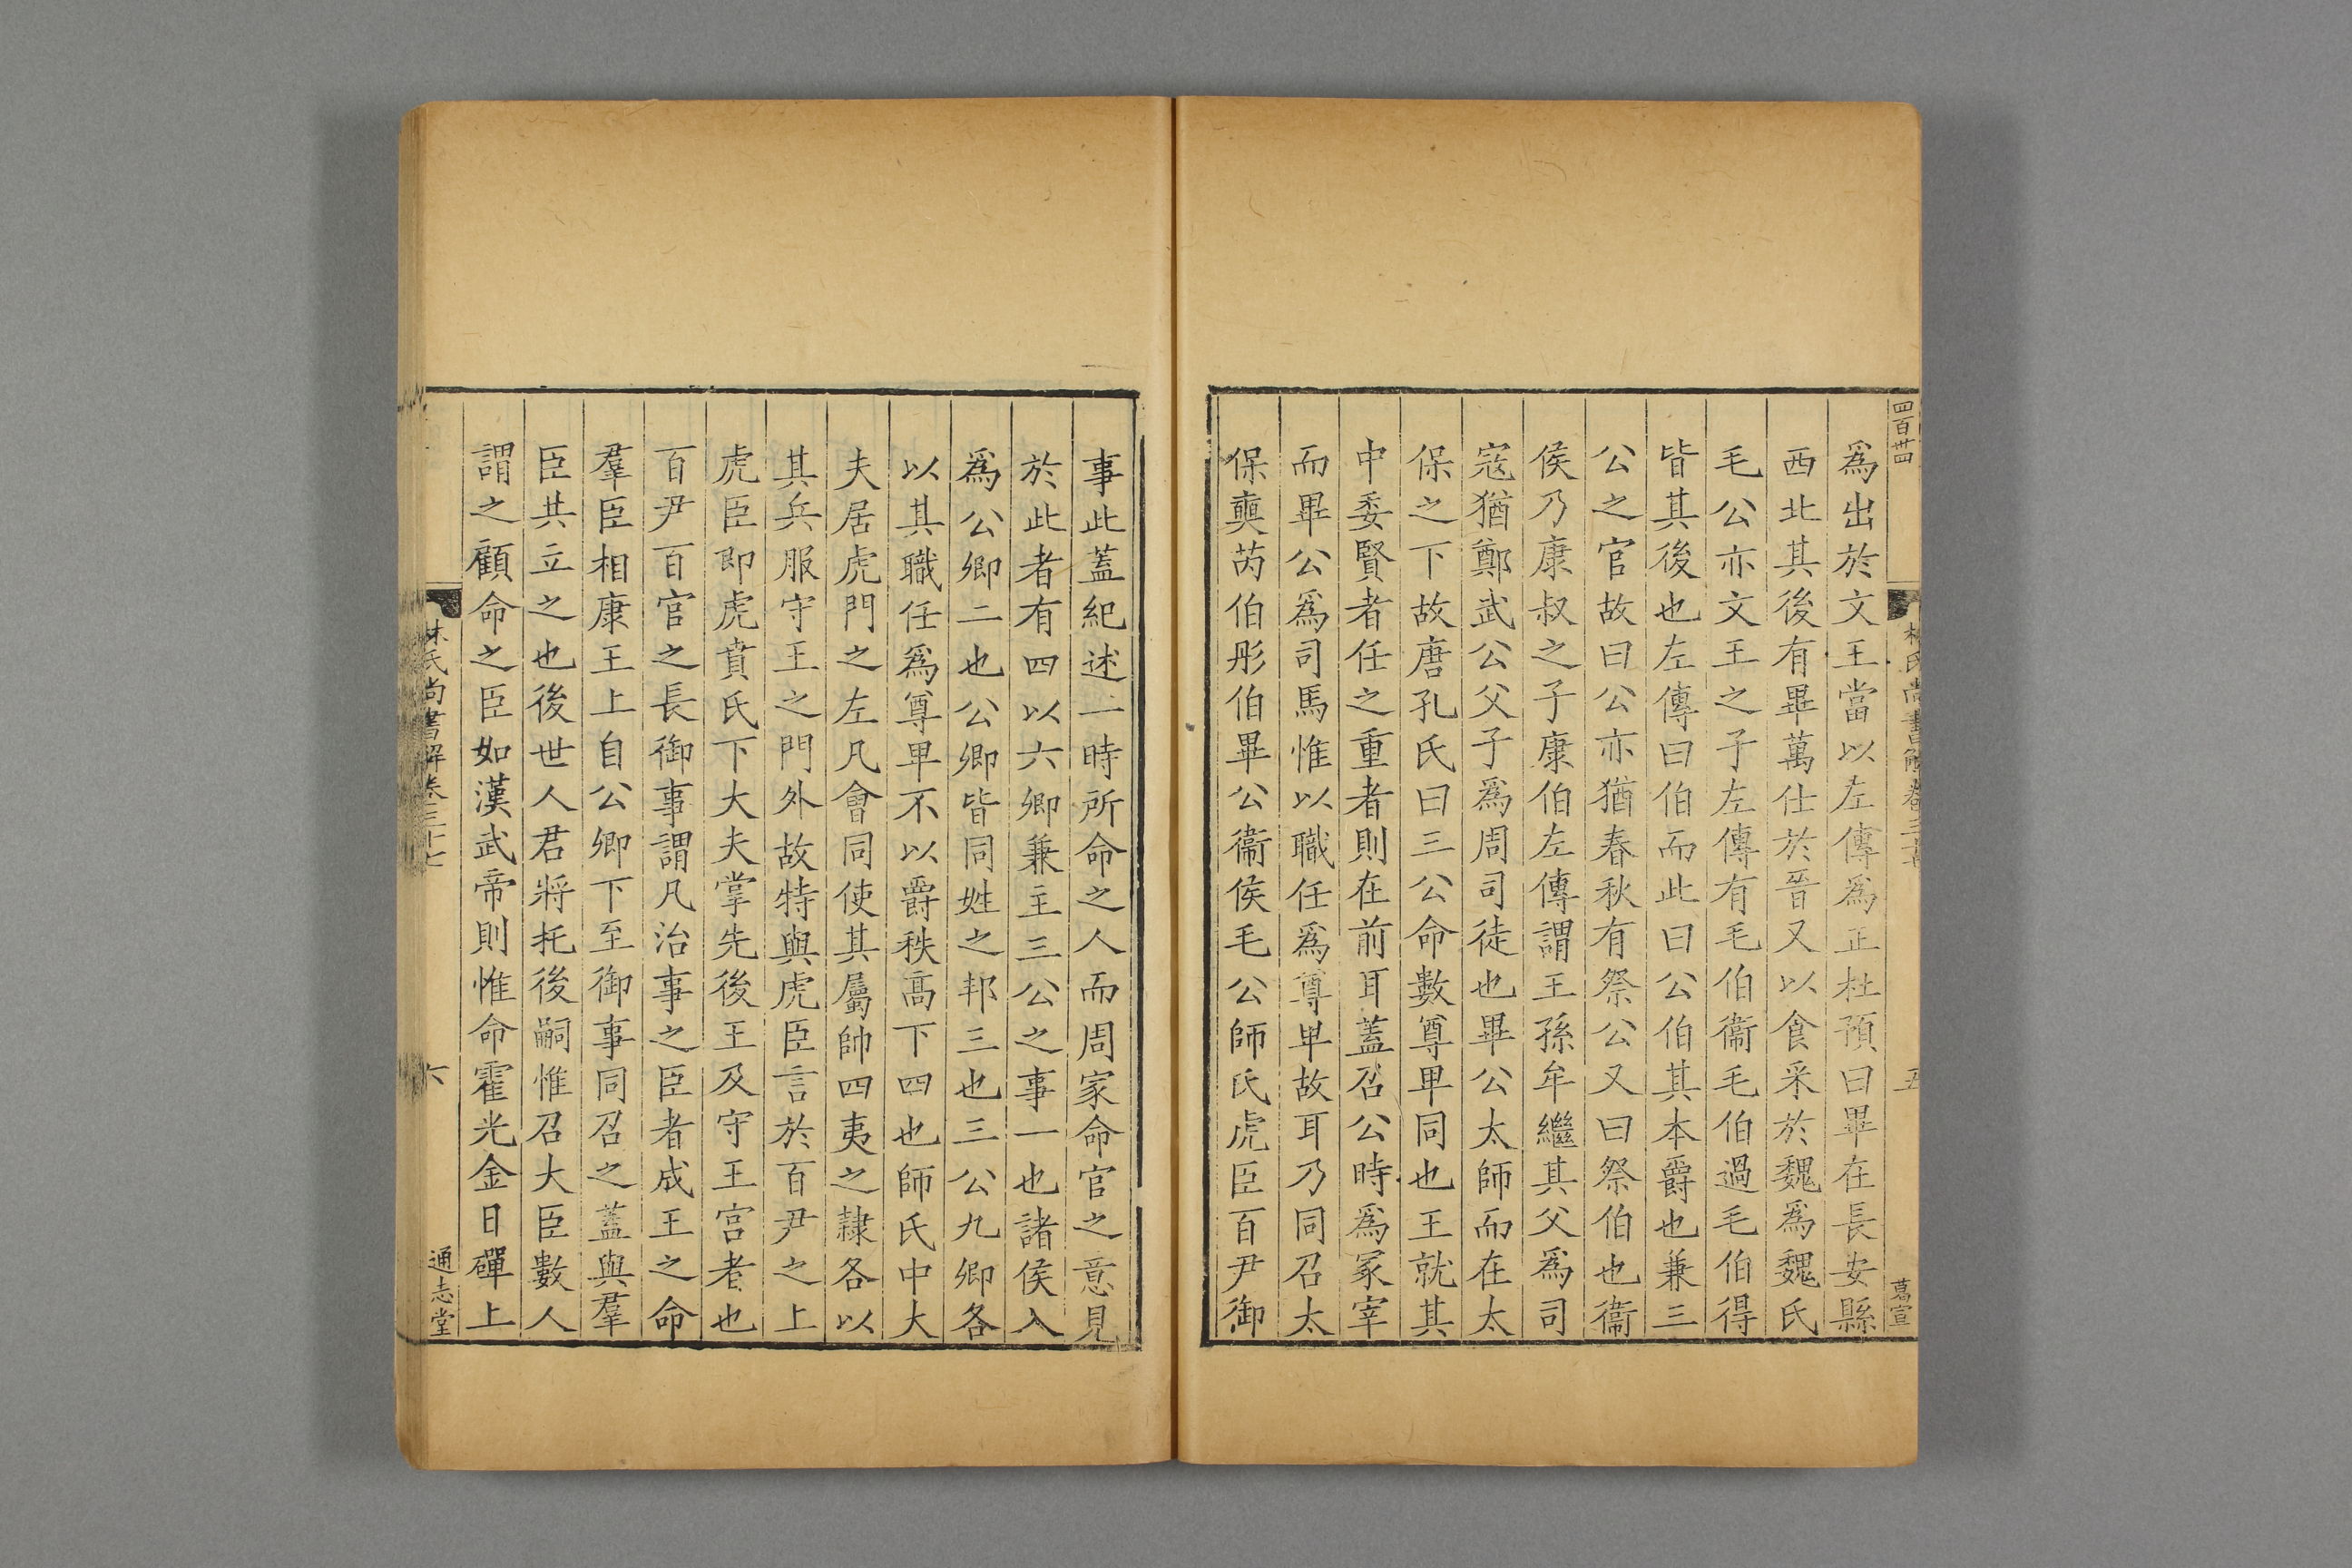 四百卅四
林氏尚書解卷三十七
五
葛宣
為出於文王當以左傳為正杜預曰畢在長安縣
西北其後有畢萬仕於晉又以食采於魏為魏氏
毛公亦文王之子左傳有毛伯衞毛伯過毛伯得
皆其後也左傳曰伯而此曰公伯其本爵也兼三
公之官故曰公亦猶春秋有祭公又曰祭伯也衞
侯乃康叔之子康伯左傳謂王孫牟繼其父為司
寇猶鄭武公父子為周司徒也畢公太師而在太
保之下故唐孔氏曰三公命數尊卑同也王就其
中委賢者任之重者則在前耳蓋召公時為冢宰
而畢公為司馬惟以職任為尊卑故耳乃同召太
保奭芮伯彤伯畢公衞侯毛公師氏虎臣百尹御
事此蓋紀述一時所命之人而周家命官之意見
於此者有四以六卿兼主三公之事一也諸侯入
為公卿二也公卿皆同姓之邦三也三公九卿各
以其職任為尊卑不以爵秩高下四也師氏中大
夫居虎門之左凡會同使其屬帥四夷之隸各以
其兵服守王之門外故特與虎臣言於百尹之上
虎臣即虎賁氏下大夫掌先後王及守王宮者也
百尹百官之長御事謂凡治事之臣者成王之命
羣臣相康王上自公卿下至御事同召之蓋與羣
臣共立之也後世人君將托後嗣惟召大臣數人
謂之顧命之臣如漢武帝則惟命霍光金日磾上
林氏尚書解卷三十七
六
通志堂